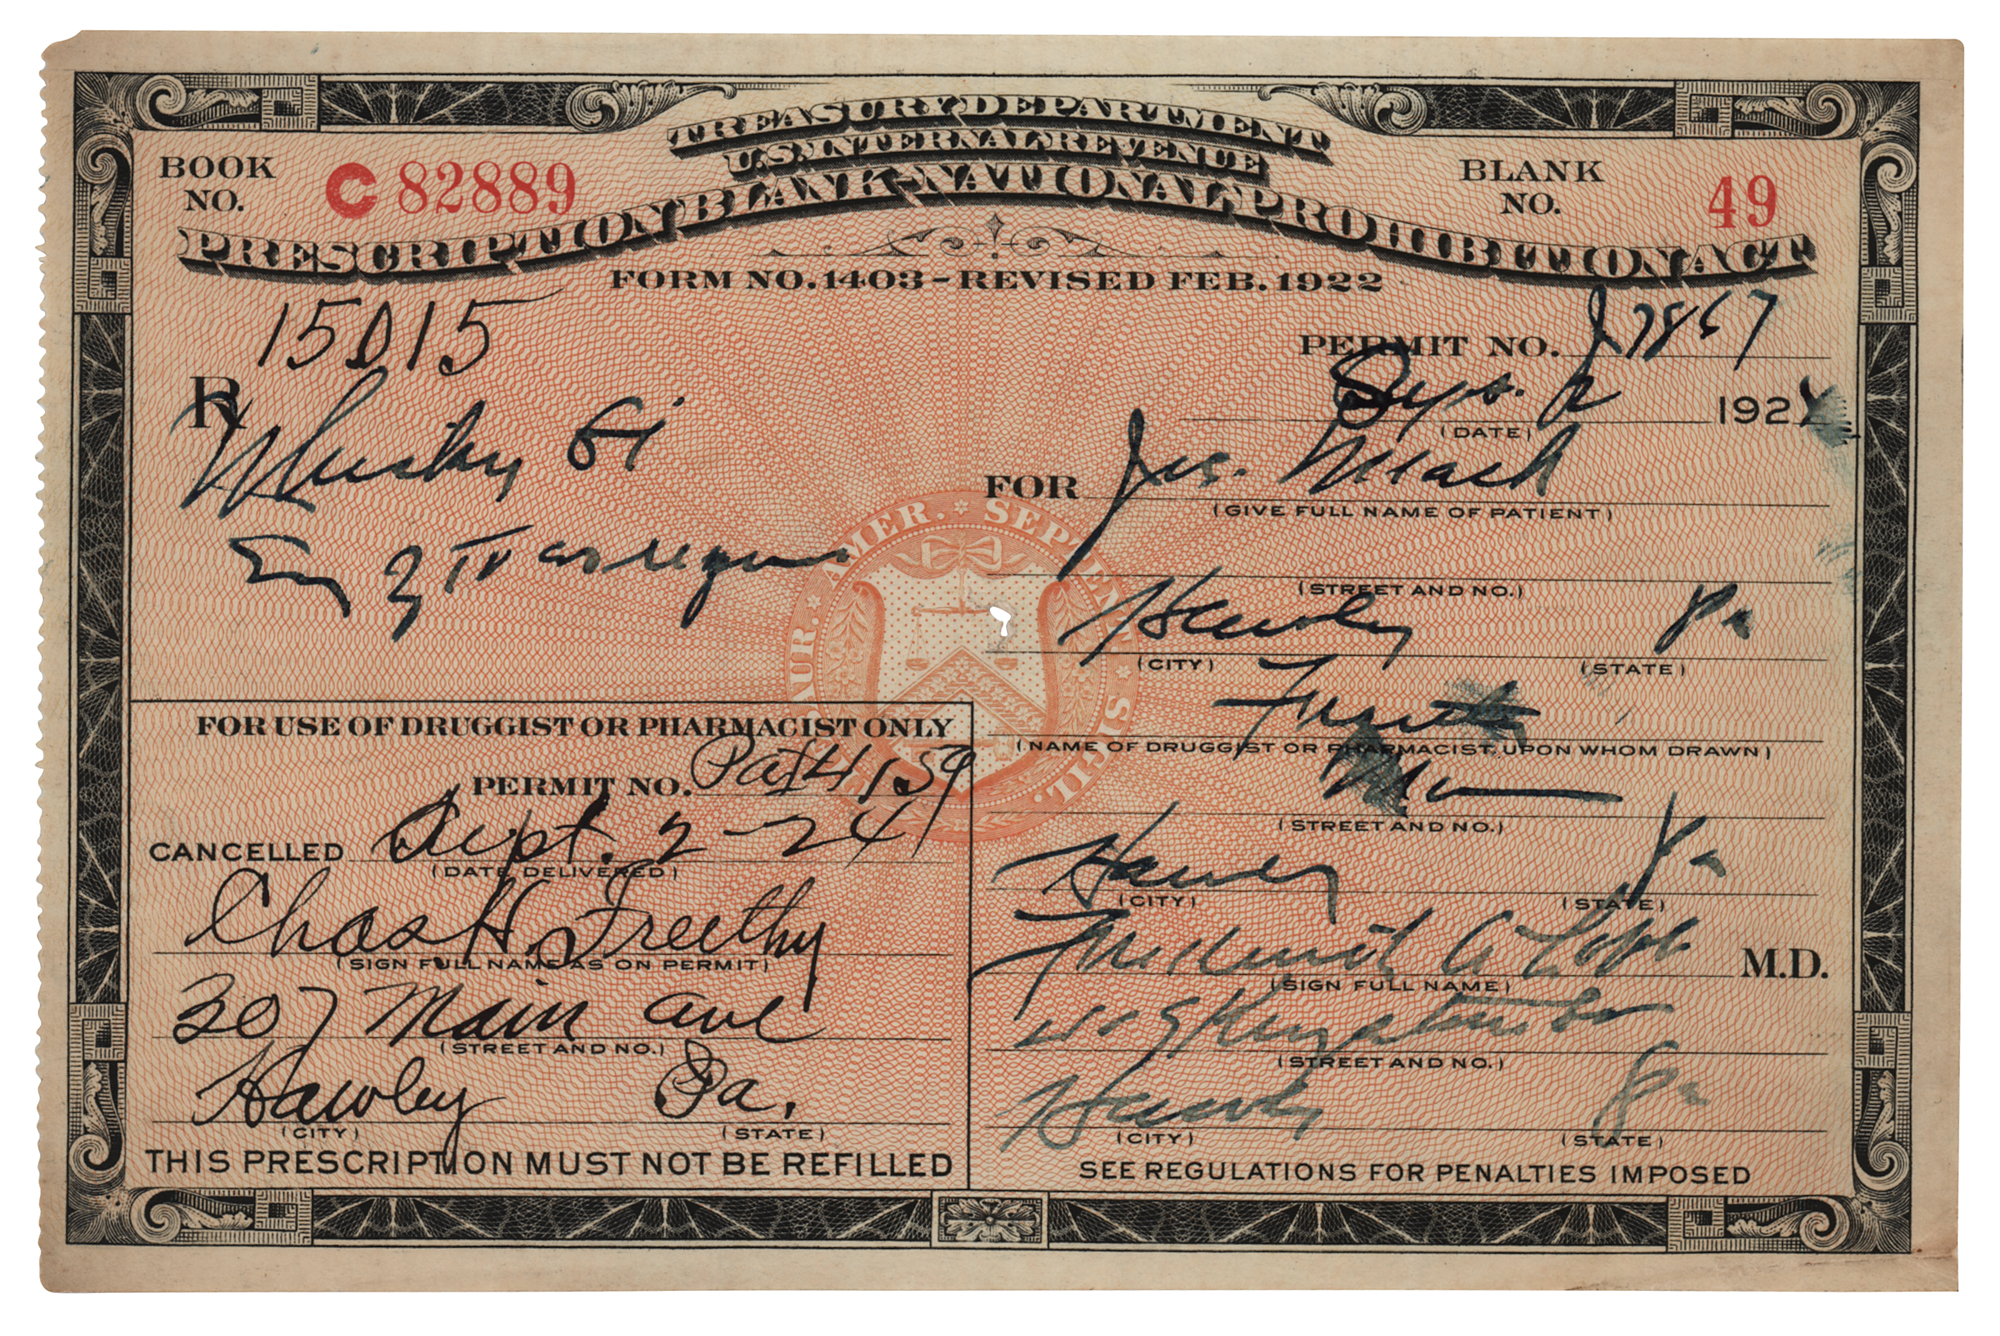 TREASURY DEPARTMENT
U.S. INTERNAL REVENUE
PRESCRIPTION BLANK-NATIONAL PROHIBITION ACT
BOOK NO. C 82889
BLANK NO. 49
FORM NO. 1403 - REVISED FEB. 1922
15015
PERMIT NO.
R
Whisky
192
(DATE)
FOR Jas. Mack
(GIVE FULL NAME OF PATIENT)
(STREET AND NO.)
Hawley Pa
(CITY) (STATE)
(NAME OF DRUGGIST OR PHARMACIST, UPON WHOM DRAWN)
(STREET AND NO.)
Hawley Pa
(CITY) (STATE)
Frederick A Lobb M.D.
(SIGN FULL NAME)
(STREET AND NO.)
Hawley Pa
(CITY) (STATE)
SEE REGULATIONS FOR PENALTIES IMPOSED
FOR USE OF DRUGGIST OR PHARMACIST ONLY
PERMIT NO.
CANCELLED Sept. 2-24
(DATE DELIVERED)
Chas H. Freethy
(SIGN FULL NAME AS ON PERMIT)
307 Main ave
(STREET AND NO.)
Hawley Pa.
(CITY) (STATE)
THIS PRESCRIPTION MUST NOT BE REFILLED